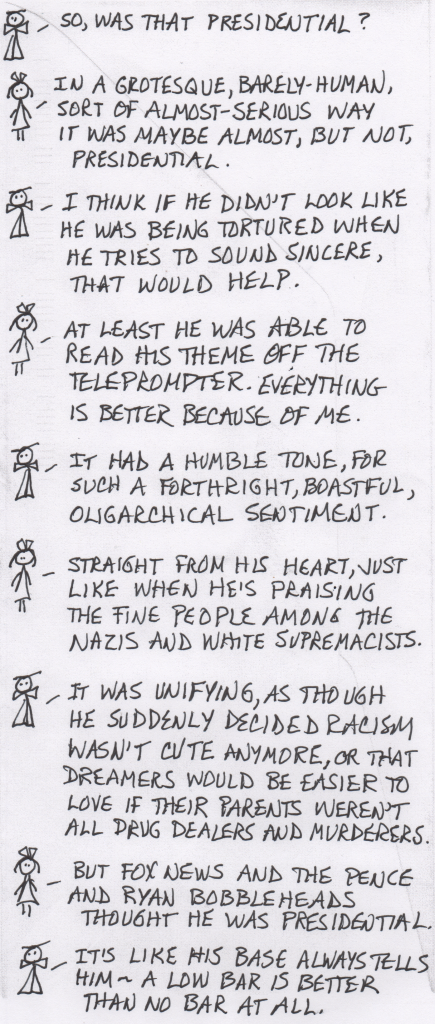 SO, WAS THAT PRESIDENTIAL?
IN A GROTESQUE, BARELY-HUMAN,
SORT OF ALMOST-SERIOUS WAY
IT WAS MAYBE ALMOST, BUT NOT,
PRESIDENTIAL.
I THINK IF HE DIDN'T LOOK LIKE
HE WAS BEING TORTURED WHEN
HE TRIES TO SOUND SINCERE,
THAT WOULD HELP.
AT LEAST HE WAS ABLE TO
READ HIS THEME OFF THE
TELEPROMPTER. EVERYTHING
IS BETTER BECAUSE OF ME.
IT HAD A HUMBLE TONE, FOR
SUCH A FORTHRIGHT, BOASTFUL,
OLIGARCHICAL SENTIMENT.
STRAIGHT FROM HIS HEART, JUST
LIKE WHEN HE'S PRAISING
THE FINE PEOPLE AMONG THE
NAZIS AND WHITE SUPREMACISTS.
IT WAS UNIFYING, AS THOUGH
HE SUDDENLY DECIDED RACISM
WASN'T CUTE ANYMORE, OR THAT
DREAMERS WOULD BE EASIER TO
LOVE IF THEIR PARENTS WEREN'T
ALL DRUG DEALERS AND MURDERERS.
BUT FOX NEWS AND THE PENCE
AND RYAN BOBBLEHEADS
THOUGHT HE WAS PRESIDENTIAL.
IT'S LIKE HIS BASE ALWAYS TELLS
HIM ~ A LOW BAR IS BETTER
THAN NO BAR AT ALL.